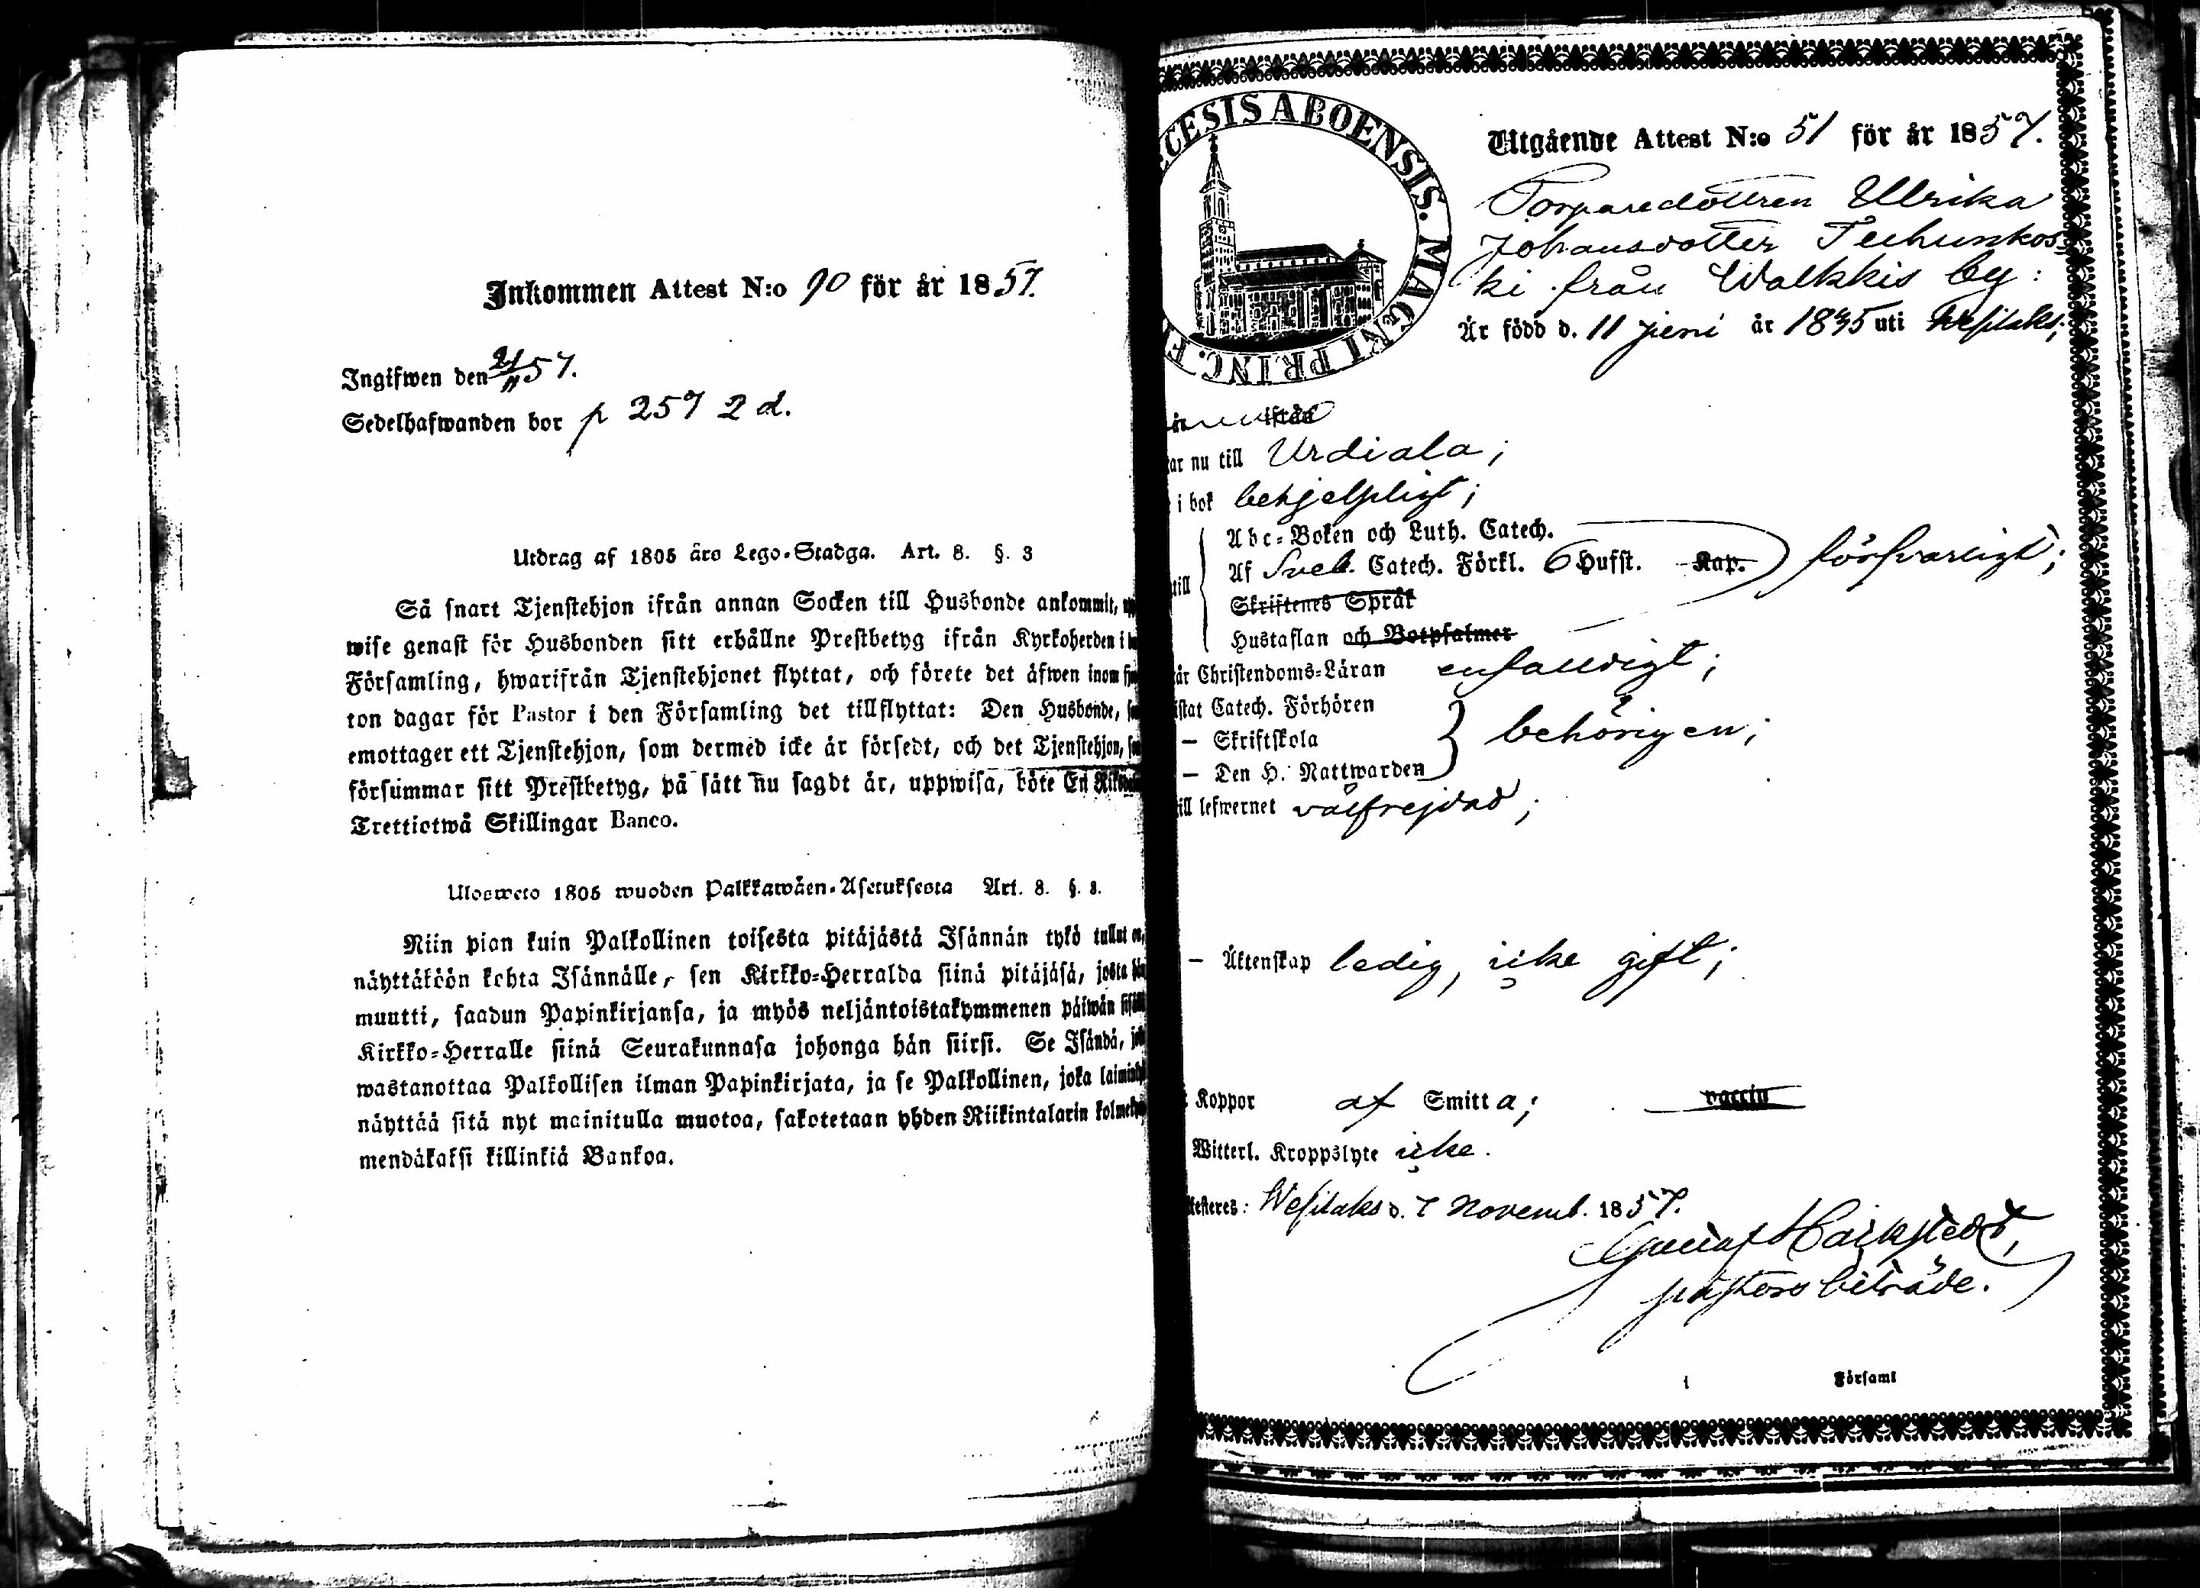 Inkommen Attest N:o 90 för år 1857.
Ingifwen den 21/11 57.
Sedelhafwanden bor p 257 2 d.
Utdrag af 1805 års Lego-Stadga. Art. 8. §. 3
Så snart Tjenstehjon ifrån annan Socken till Husbonde ankommit,
wise genast för Husbonden sitt erhållne Prestbetyg ifrån Kyrkoherden i
Församling, hwarifrån Tjenstehjonet flyttat, och förete det äfwen inom
ton dagar för Pastor i den Församling det tillflyttat: Den Husbonde,
emottager ett Tjenstehjon, som dermed icke är försedt, och det Tjenstehjon,
försummar sitt Prestbetyg, på sätt nu sagdt är, uppwisa, böte En
Trettiotwå Skillingar Banco.
Ulosweto 1805 wuoden Palkkawäen-Asetuksesta Art. 8. §. 3.
Niin pian kuin Palkollinen toisesta pitäjästä Isännän tykö tullut on,
näyttäköön kohta Isännälle, sen Kirkko-Herralda siinä pitäjäsä, josta
muutti, saadun Papinkirjansa, ja myös neljäntoistakymmenen päiwän
Kirkko-Herralle siinä Seurakunnasa johonga hän siirsi. Se Isändä,
wastanottaa Palkollisen ilman Papinkirjata, ja se Palkollinen, joka
näyttää sitä nyt mainitulla muotoa, sakotetaan yhden Riikintalarin
mendäkaksi killinkiä Bankoa.
CESIS ABOENSIS. MAGNI PRINC. F
Utgående Attest N:o 51 för år 1857.
Torparedottren Ullrika
Johansdotter
ki från Walkkis by:
Är född d. 11 juni år 1835 uti Wesilaks;
ifrån
ar nu till Urdiala;
i bok behjelpligt;
Abc-Boken och Luth. Catech.
till Af Sveb. Catech. Förkl. 6 Hufst. Kap. försvarligt;
Skriftenes Språk
Hustaflan och Botpsalmer
är Christendoms-Läran enfalldigt;
istat Catech. Förhören
— Skriftskola behörigen;
— Den H. Nattwarden
till lefwernet välfrejdad;
— Äktenskap ledig, icke gift;
Koppor af Smitta; vaccin
Witterl. Kroppslyte icke.
testeres: Wesilaks d. 7 Novemb. 1857.
Gustaf
pastors biträde.
i Församl